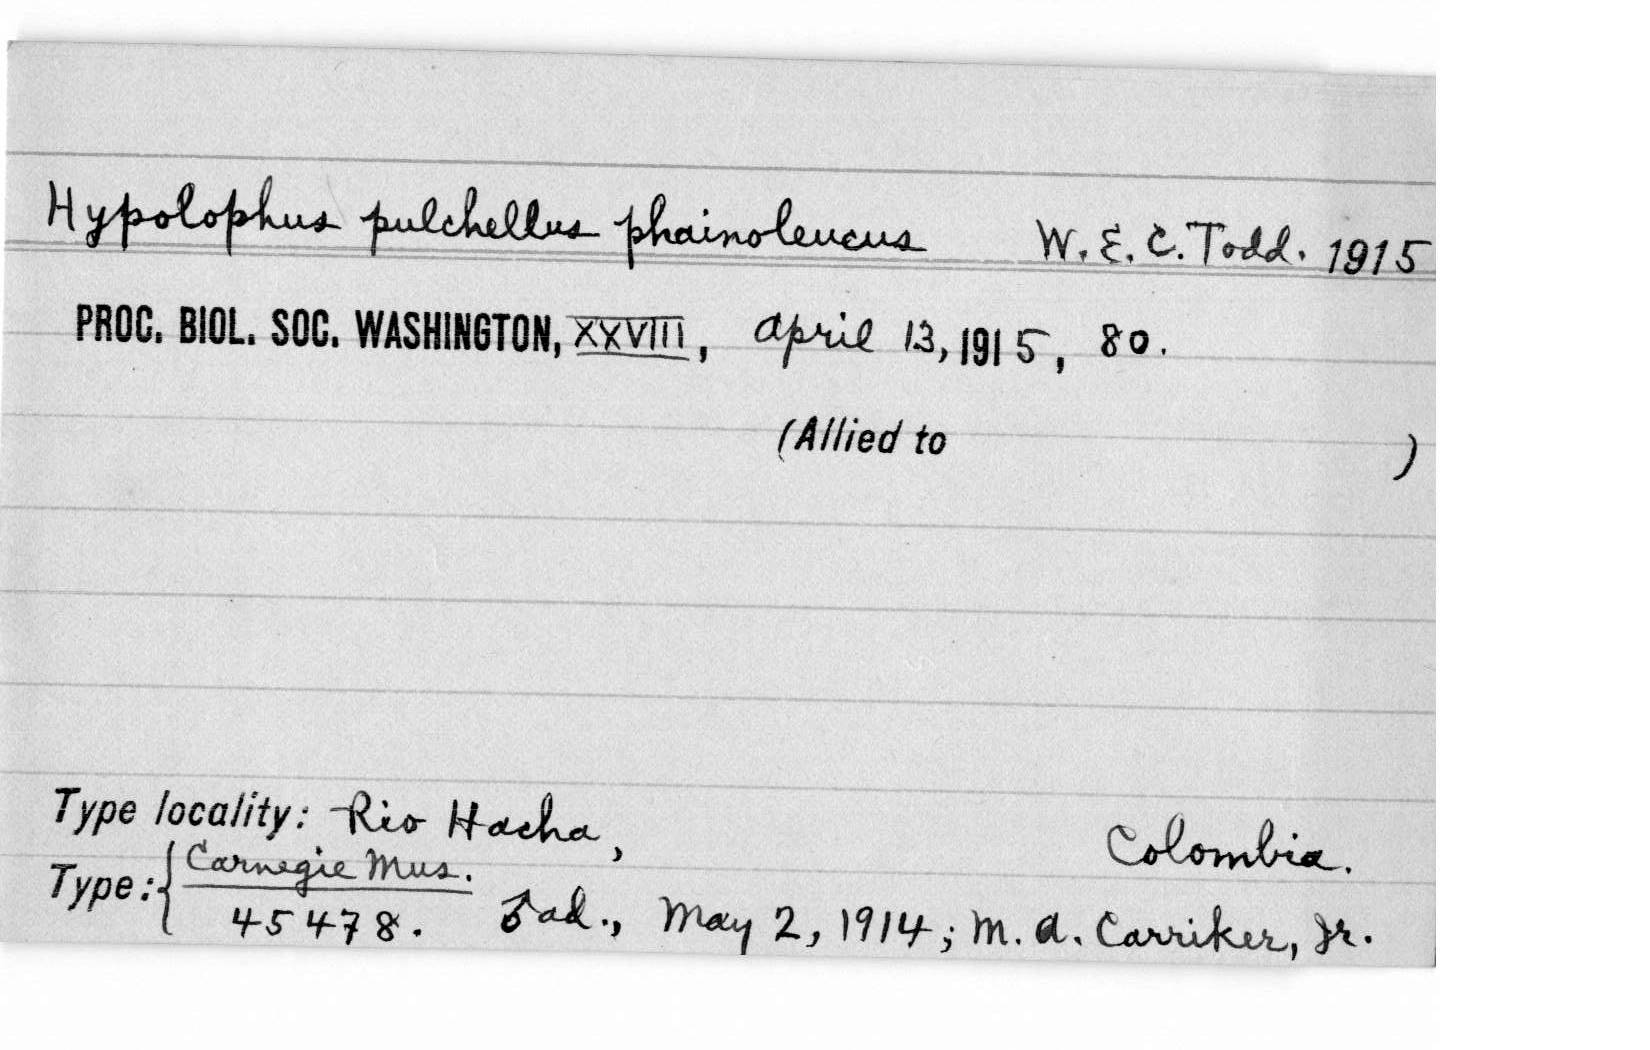 Hypolophus pulchellus phainoleucus W. E. C. Todd. 1915
PROC. BIOL. SOC. WASHINGTON, XXVIII, April 13, 1915, 80.
(Allied to )
Type locality: Rio Hacha, Colombia.
Type: { Carnegie Mus.
45478. ♂ ad., May 2, 1914; M. A. Carriker, Jr.